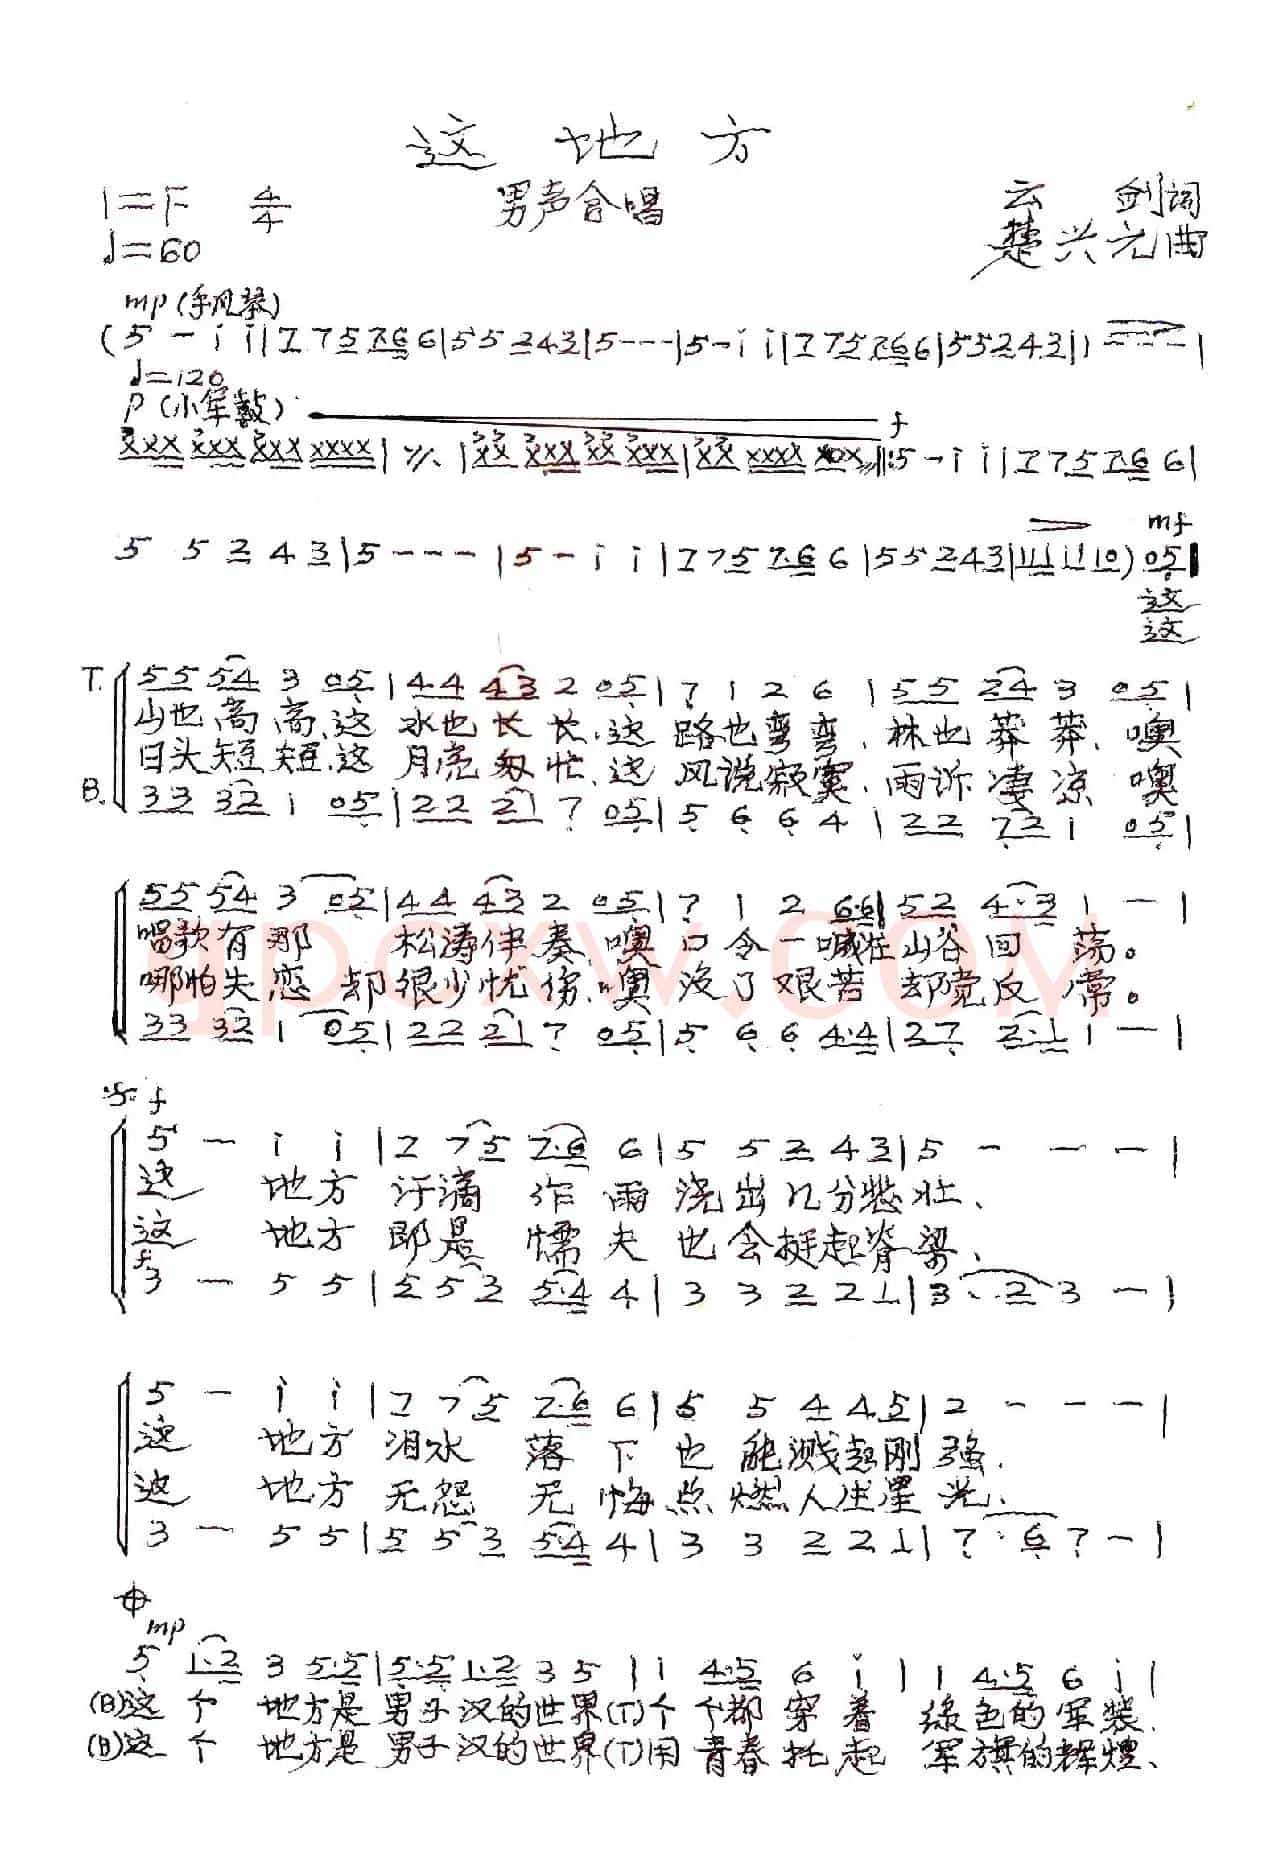 这地方
1=F 4/4 男声合唱 云剑词
♩=60 楚兴元曲
mp(手风琴)
(5 - i i|7 7 5 7·6 6|5 5 2 4 3|5 - - -|5 - i i|7 7 5 7·6 6|5 5 2 4 3|1 - - -|
♩=120
P(小军鼓) f
xxx xxx xxx xxxx|٪|xx xxx xx xxx|xx xxxx x0x ‖:5 - i i|7 7 5 7·6 6|
mf
5 5 2 4 3|5 - - -|5 - i i|7 7 5 7·6 6|5 5 2 4 3|11 11 10) 05
这
这
T. 55 54 3 05|44 43 2 05|7 1 2 6|55 24 3 05|
山也高高、这水也长长、这路也弯弯、林也莽莽、噢
日头短短、这月亮匆忙、这风说寂寞、雨诉凄凉噢
B. 33 32 1 05|22 21 7 05|5 6 6 4|22 72 1 05|
55 54 3 05|44 43 2 05|7 1 2 6·6|52 4·3 1 -|
唱歌有那松涛伴奏、噢口令一喊在山谷回荡。
哪怕失恋却很少忧伤、噢没了艰苦却觉反常。
33 32 1 05|22 21 7 05|5 6 6 4·4|27 2·1 1 -|
f
5 - i i|7 7 5 7·6 6|5 5 2 4 3|5 - - -|
这地方汗滴作雨浇出几分悲壮、
这地方即是懦夫也会挺起脊梁、
f
3 - 5 5|5 5 3 5·4 4|3 3 2 2 1|3· 2 3 -|
5 - i i|7 7 5 7·6 6|5 5 4 4 5|2 - - -|
这地方泪水落下也能溅起刚强、
这地方无怨无悔点燃人生星光、
3 - 5 5|5 5 3 5·4 4|3 3 2 2 1|7· 6 7 -|
mp
5 1·2 3 5·5|5·5 1·2 3 5|1 4·5 6 i|1 4·5 6 i|
(B)这个地方是男子汉的世界(T)个个都穿着绿色的军装、
(B)这个地方是男子汉的世界(T)用青春托起军旗的辉煌、